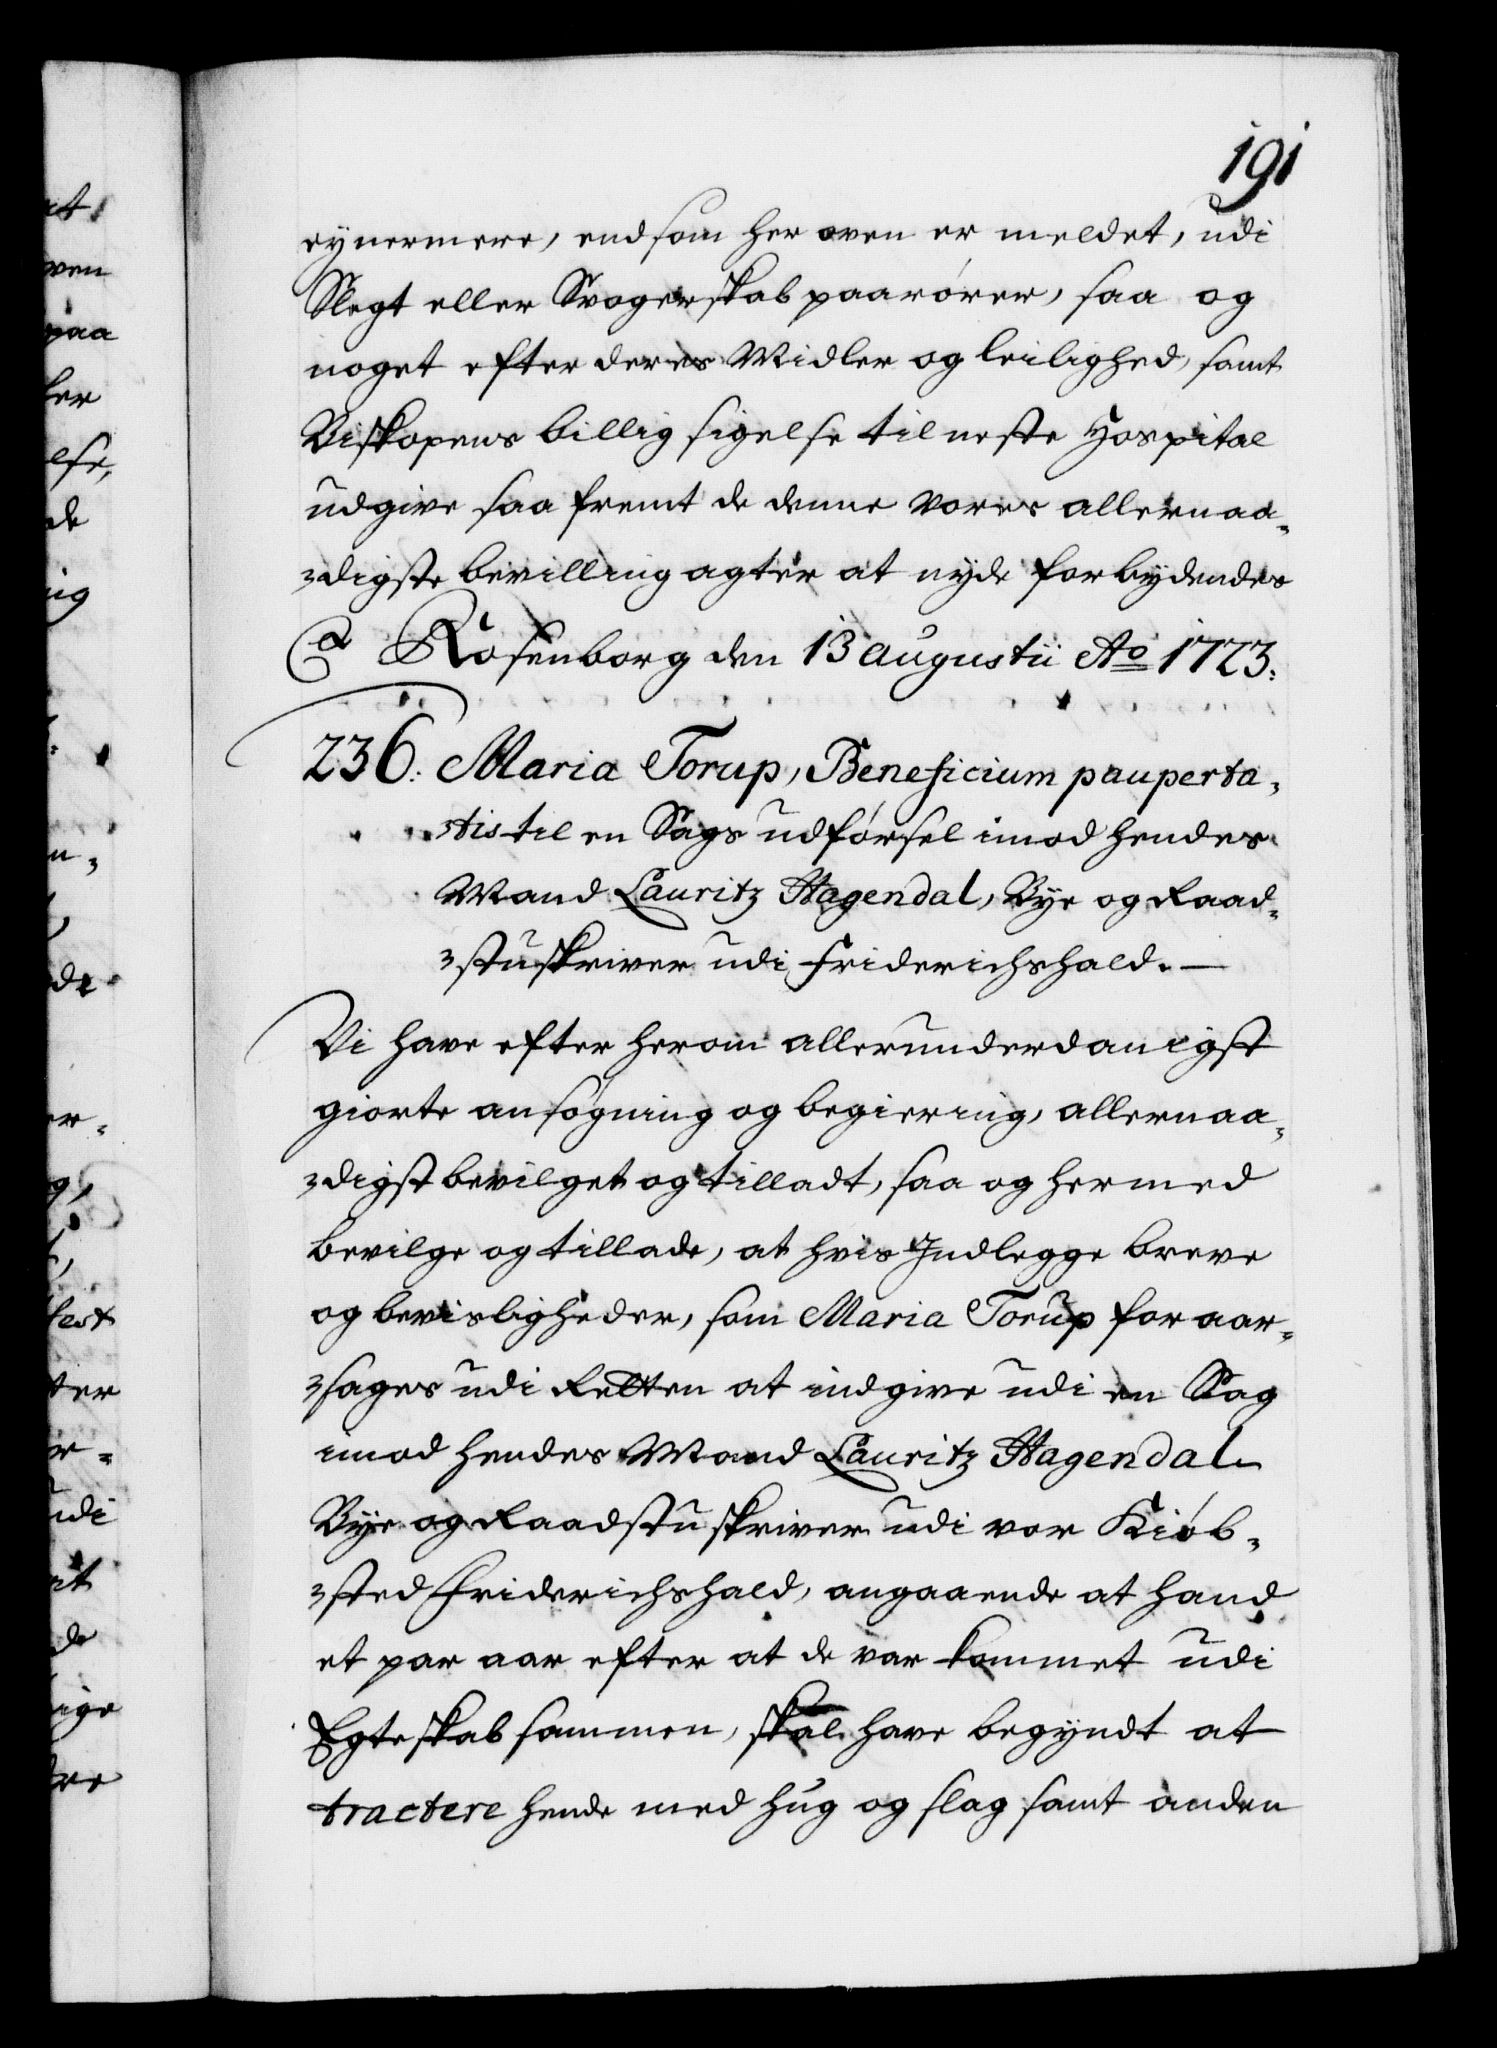 191
eynermere, end som her oven er meldet, udi
Slegt eller Svogerskab paarører, saa og
noget efter deres Midler og leilighed, samt
Biskopens billig sigelse til neste Hospital
udgive saa fremt de denne vores allernaa-
digste bevilling agter at nyde forbydendes
Rosenborg den 13 augustii Ao 1723.
236. Maria Torup, Beneficium pauperta-
tis til en Sags udførsel imod hendes
Mand Lauritz Hagendal, Bye og Raad-
stuskriver udi Friderichshald.
Vi have efter herom allerunderdanigst
giorte ansøgning og begiering, allernaa-
digst bevilget og tilladt, saa og hermed
bevilge og tillade, at hvis Indlegge breve
og bevisligheder, som Maria Torup foraar-
sages udi Retten at indgive udi en Sag
imod hendes Mand Lauritz Hagendal
Bye og Raadstuskriver udi vor Kiøb-
sted Friderichshald, angaaende at hand
et par aar efter at de var kommet udi
Egteskab sammen, skal have begyndt at
tractere hende med hug og slag samt anden